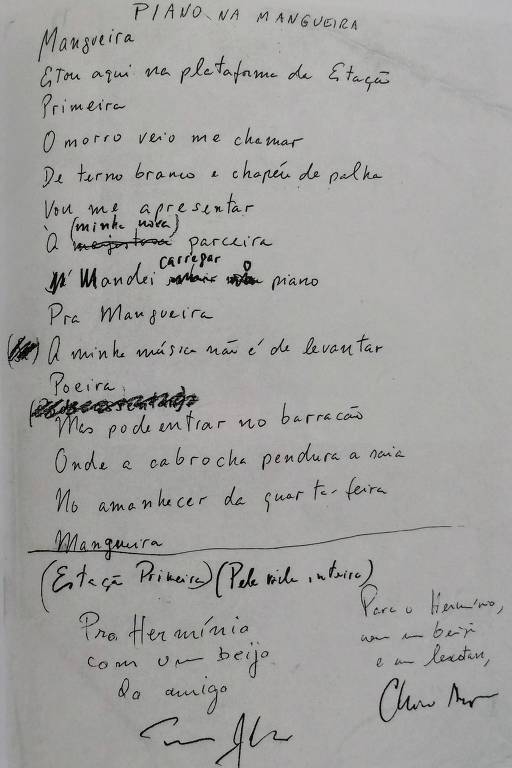 PIANO NA MANGUEIRA
Mangueira
Estou aqui na plataforma da Estação
Primeira
O morro veio me chamar
De terno branco e chapéu de palha
Vou me apresentar
(minha nova)
À majestosa parceira
carregar o
Já Mandei piano
Pra Mangueira
A minha música não é de levantar
Poeira
Mas pode entrar no barracão
Onde a cabrocha pendura a saia
No amanhecer da quarta-feira
Mangueira
(Estação Primeira) (Pela vida inteira)
Pra Hermínio
com um beijo
do amigo
Para o Hermínio,
com um beijo
e um lexotan,